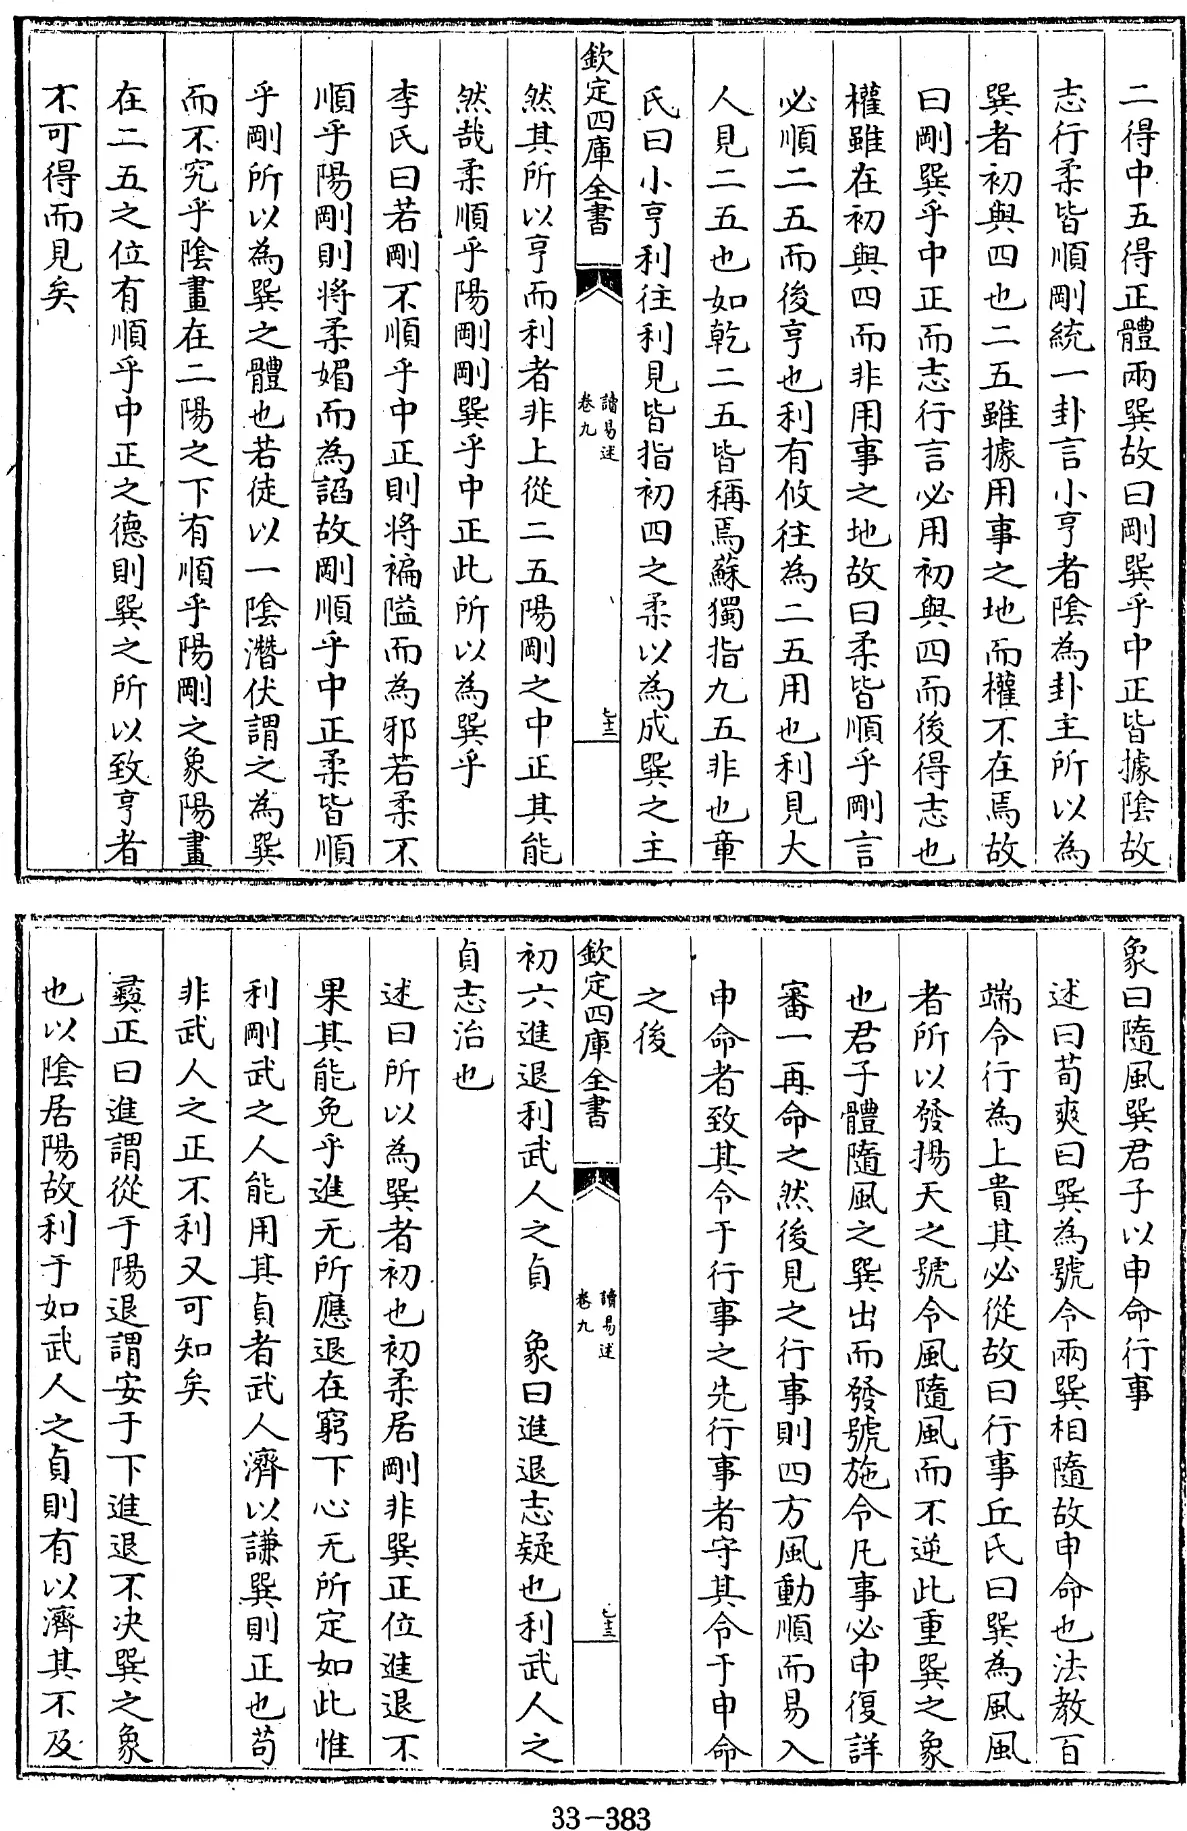 二得中五得正體兩巽故曰剛巽乎中正皆據陰故
志行柔皆順剛統一卦言小亨者陰為卦主所以為
巽者初與四也二五雖據用事之地而權不在焉故
曰剛巽乎中正而志行言必用初與四而後得志也
權雖在初與四而非用事之地故曰柔皆順乎剛言
必順二五而後亨也利有攸往為二五用也利見大
人見二五也如乾二五皆稱焉蘇獨指九五非也章
氏曰小亨利往利見皆指初四之柔以為成巽之主
欽定四庫全書
讀易述
卷九
七十三
然其所以亨而利者非上從二五陽剛之中正其能
然哉柔順乎陽剛剛巽乎中正此所以為巽乎
李氏曰若剛不順乎中正則将褊隘而為邪若柔不
順乎陽剛則将柔媚而為謟故剛順乎中正柔皆順
乎剛所以為巽之體也若徒以一陰潛伏謂之為巽
而不究乎陰畫在二陽之下有順乎陽剛之象陽畫
在二五之位有順乎中正之德則巽之所以致亨者
不可得而見矣
象曰隨風巽君子以申命行事
述曰荀爽曰巽為號令兩巽相隨故申命也法教百
端令行為上貴其必從故曰行事丘氏曰巽為風風
者所以發揚天之號令風隨風而不逆此重巽之象
也君子體隨風之巽出而發號施令凡事必申復詳
審一再命之然後見之行事則四方風動順而易入
申命者致其令于行事之先行事者守其令于申命
之後
欽定四庫全書
讀易述
卷九
七十三
初六進退利武人之貞　象曰進退志疑也利武人之
貞志治也
述曰所以為巽者初也初柔居剛非巽正位進退不
果其能免乎進无所應退在窮下心无所定如此惟
利剛武之人能用其貞者武人濟以謙巽則正也苟
非武人之正不利又可知矣
彛正曰進謂從于陽退謂安于下進退不决巽之象
也以陰居陽故利于如武人之貞則有以濟其不及
33-383